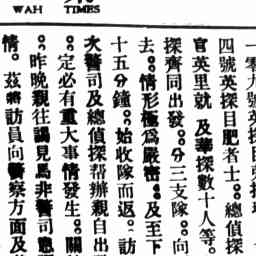 WAH TIMES
四號英探目肥者士。。總偵探
官英里就 及華探數十人等。
探齊同出發。。分三支隊。。向
去。。情形極爲嚴密。。及至下
十五分鐘。。始收隊而返。。訪
大警司及總偵探帮辦親自出
。。定必有重大事情發生。。關
。。昨晚親往謁見馬非警司
情。茲將訪員向警察方面及